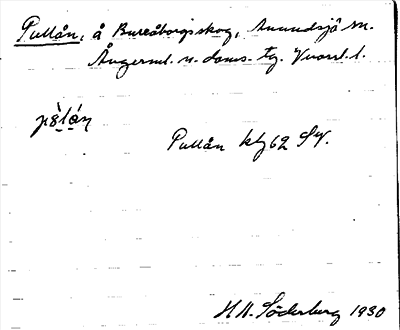 Pullån, å Bureåborgsskog, Anundsjö sn.
Ångerml. n. doms. tg. Vuorl. l.
Pullån kbl 62 SV.
H.A. Söderberg 1930